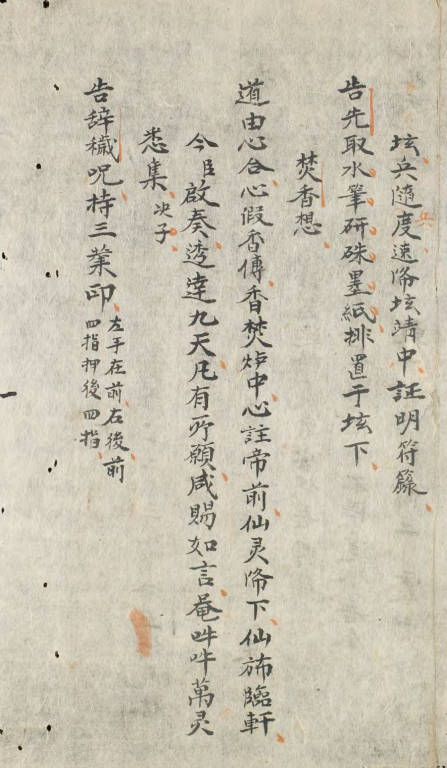 坛兵隨度速降坛靖中証明符籙
兵
告先取水筆研硃墨紙排置于坛下
焚香想
道由心合心假香傳香焚炉中心註帝前仙灵降下仙斾臨軒
今臣啟奏透達九天凡有所願咸賜如言菴吽吽萬灵
悉集 次子
告辞穢呪持三業印 左手在前右後前
四指押後四指